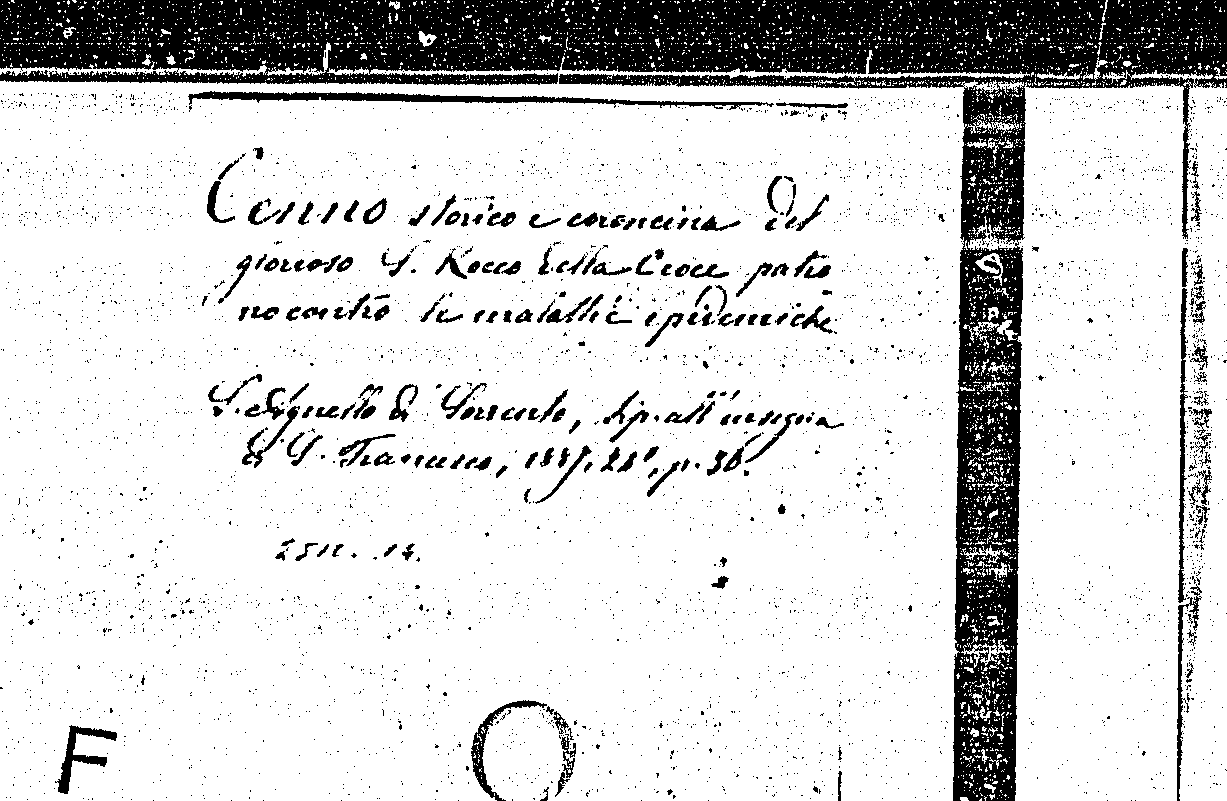 Cenno storico e coroncina del
glorioso S. Rocco della Croce patro
no contro le malattie epidemiche
S. Agnello di Sorrento, tip. all'insegna
di S. Francesco, 1887. 24°, p. 36.
2511. 14.
F